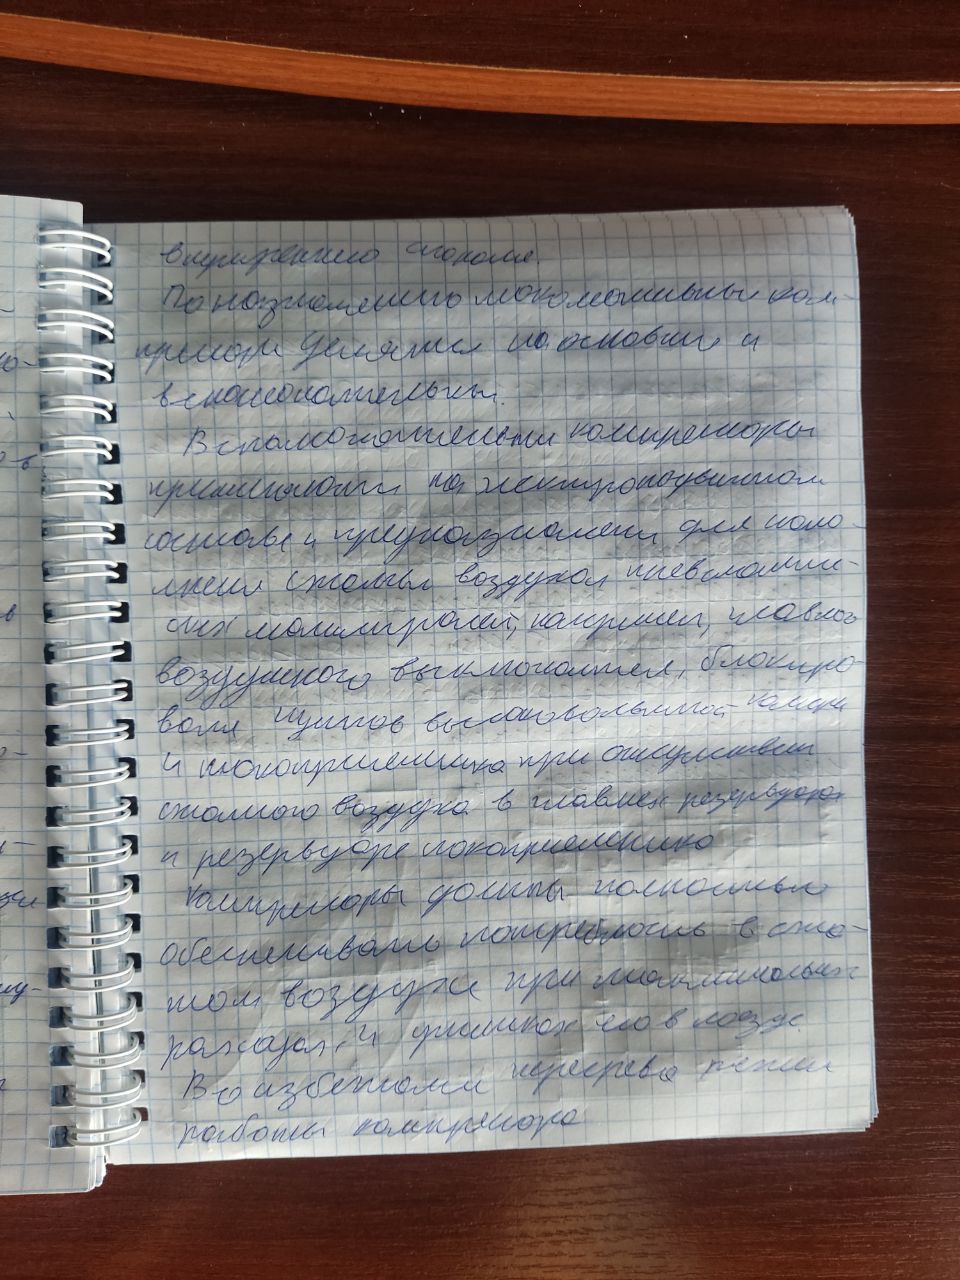 внутреннего сгорания.
По назначению локомотивные ком-
прессоры делятся на основные и
вспомогательные.
Вспомогательные компрессоры
применяются на электроподвижном
составе и предназначены для напо-
лнения сжатым воздухом пневматиче-
ских магистралей, например, главного
воздушного выключателя, блокиро-
вания щитов высоковольтной камеры
и токоприемника при отсутствии
сжатого воздуха в главных резервуарах
и резервуаре токоприемника
Компрессоры должны полностью
обеспечивать потребность в сжа-
том воздухе при максимальных
расходах и утечках его в поезде.
Во избежание перегрева режим
работы компрессора